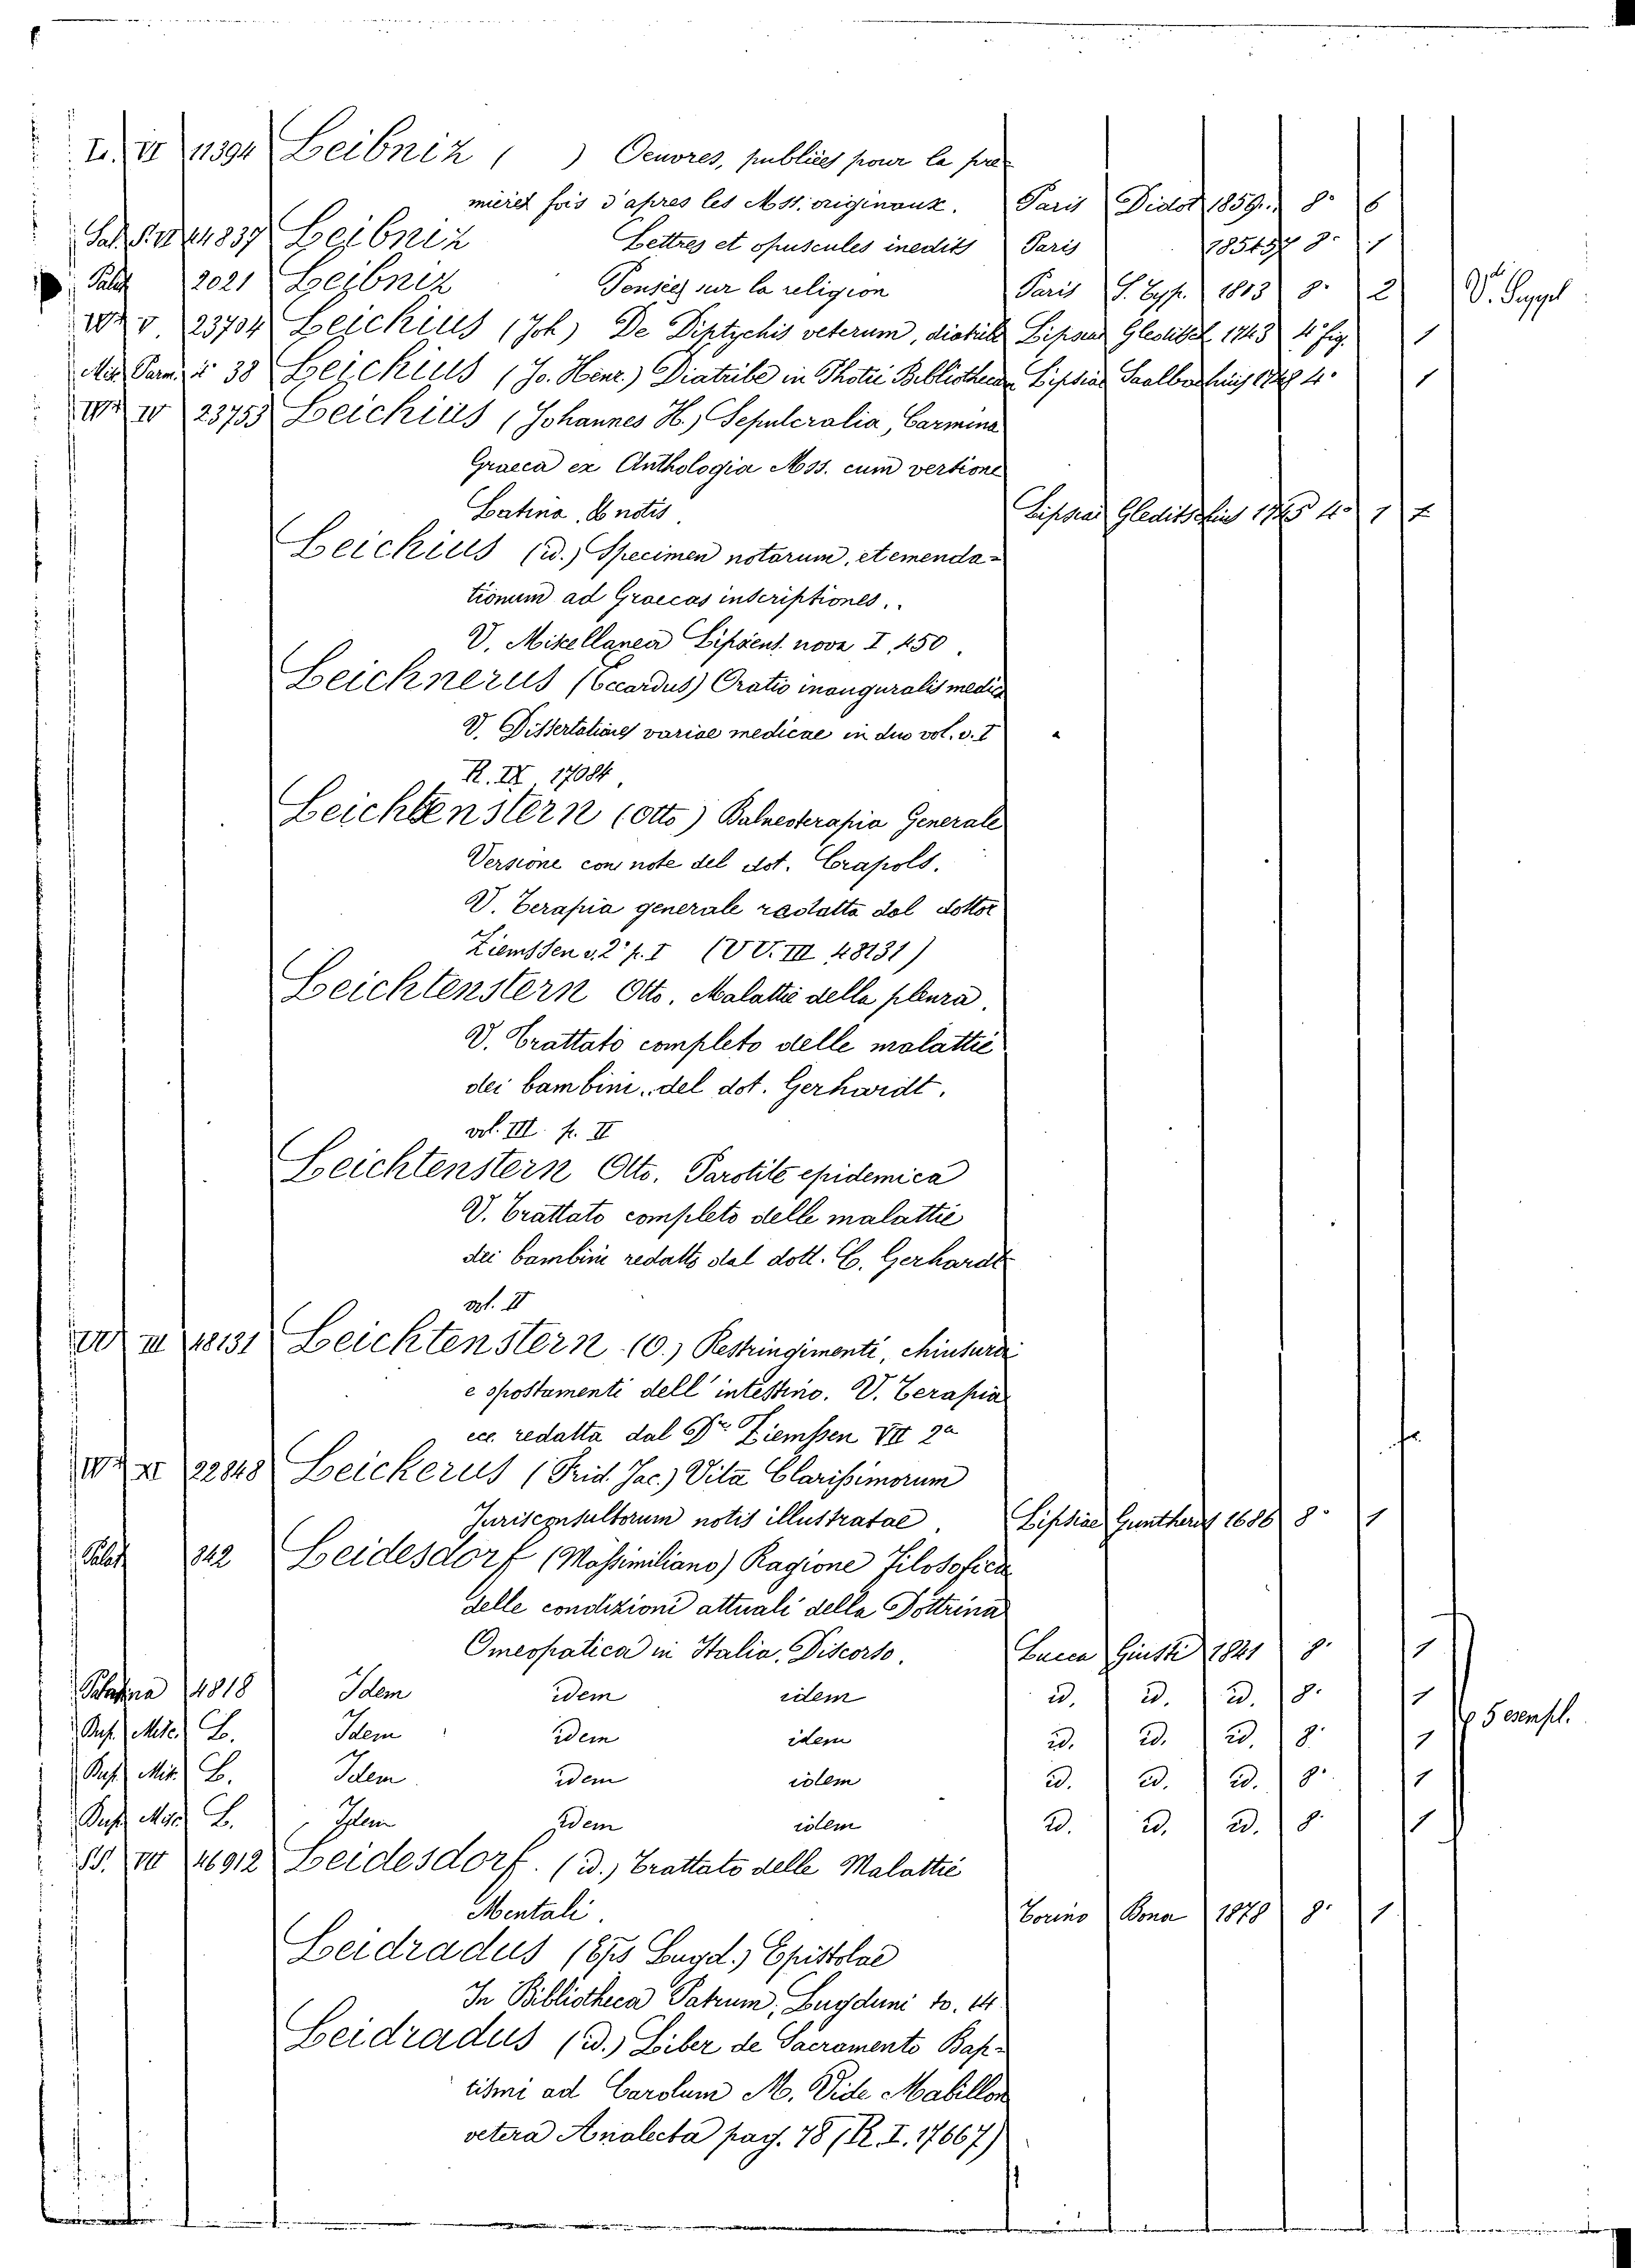 L. VI 11394 Leibniz ( ) Oeuvres, publiées pour la pre-
mieret fois d'apres les Mss. originaux. Paris Didot 1859. 8° 6
Sal. 24837 Leibniz Lettres et opuscules inedits Paris 1854 57 8° 1
Palat 2021 Leibniz Pensées sur la religion Paris S. Typ. 1803 8° 2 V. Suppl
W² V 23704 Leichius (Joh) De Diptychis veterum, diatribe Lipsiae Gleditsch 1743 4° fig. 1
Mis. Parm. 4° 38 Leichius (Jo. Henr.) Diatribe in Photii Bibliothecam Lipsiae 1748 4° 1
W² IV 23753 Leichius (Johannes H.) Sepulcralia, Carmina
Graeca ex Anthologia Mss. cum vertione
Latina, & notis. Lipsiae Gleditschius 1745 4° 1
Leichius (id.) Specimen notarum, et emenda-
tionum ad Graecas inscriptiones.
V. Miscellanea Lipsiens. nova I, 450.
Leichnerus (Eccardus) Oratio inauguralis medica
V. Dissertationes variae medicae in duo vol. v. I
R. IX, 17084.
Leichtenstern (Otto) Balneoterapia Generale
Versione con note del dot. Crapols.
V. Terapia generale radatta dal dottor
Ziemssen v. 2° p. I (VV. III 48131)
Leichtenstern Otto. Malattie della pleura.
V. Trattato completo delle malattie
dei bambini, del dot. Gerhardt.
vol. III. p. II
Leichtenstern Otto. Parotite epidemica
V. Trattato completo delle malattie
dei bambini redatto dal dott. C. Gerhardt
vol. II
VV III 48131 Leichtenstern (O.) Restringimenti, chiusure
e spostamenti dell' intestino. V. Terapia
ecc. redatta dal Dr. Ziemssen VII 2a
W² XI 22848 Leickerus (Frid. Jac.) Vita Clarissimorum
Jurisconsultorum notis illustratae. Lipsiae Guntherus 1686 8° 1
Palat 342 Leidesdorf (Massimiliano) Ragione Filosofica
delle condizioni attuali della Dottrina
Omeopatica in Italia. Discorso. Lucca Giusti 1841 8° 1
Palatina 4818 Idem idem idem id. id. id. 8° 1
Busf. Misc. B. Idem idem idem id. id. id. 8° 1 5 esempl.
Busf. Mis. B. Idem idem idem id. id. id. 8° 1
Busf. Misc. B. Idem idem idem id. id. id. 8° 1
SS. VII 46912 Leidesdorf. (id.) Trattato delle Malattie
Mentali. Torino Bona 1878 8° 1
Leidradus (Eps Lugd.) Epistolae
In Bibliotheca Patrum, Lugduni to. 14
Leidradus (id.) Liber de Sacramento Bap-
tismi ad Carolum M. Vide Mabillon
vetera Analecta pag. 78 (R. I. 17667)